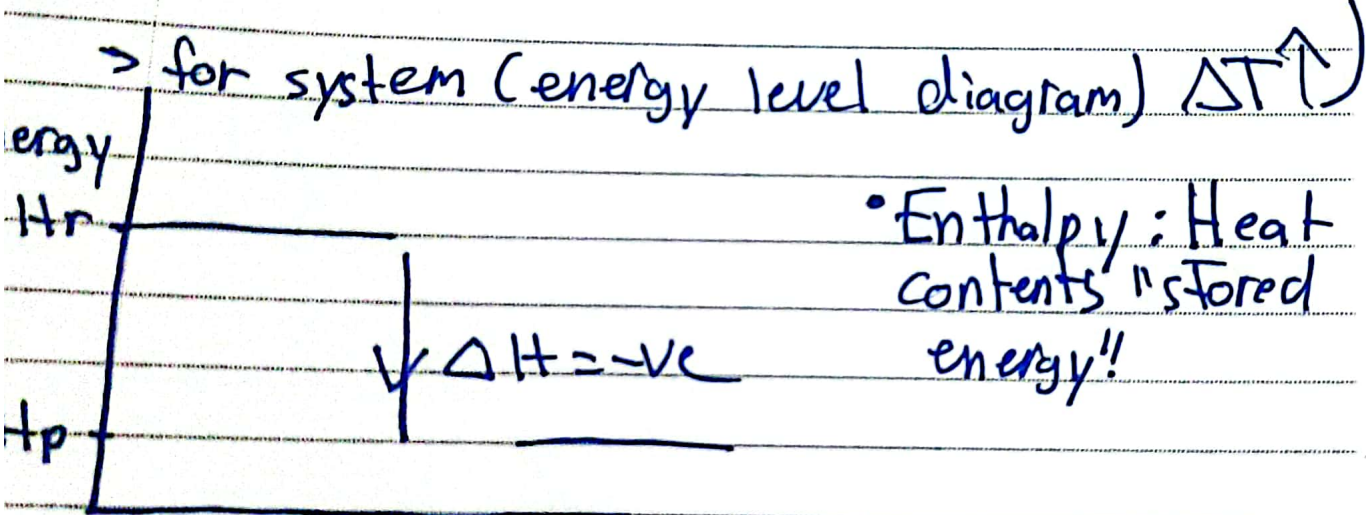 > for system (energy level diagram) ΔT↑)
ergy
Hr
• Enthalpy : Heat
contents "stored
energy"
ΔH = -ve
Hp